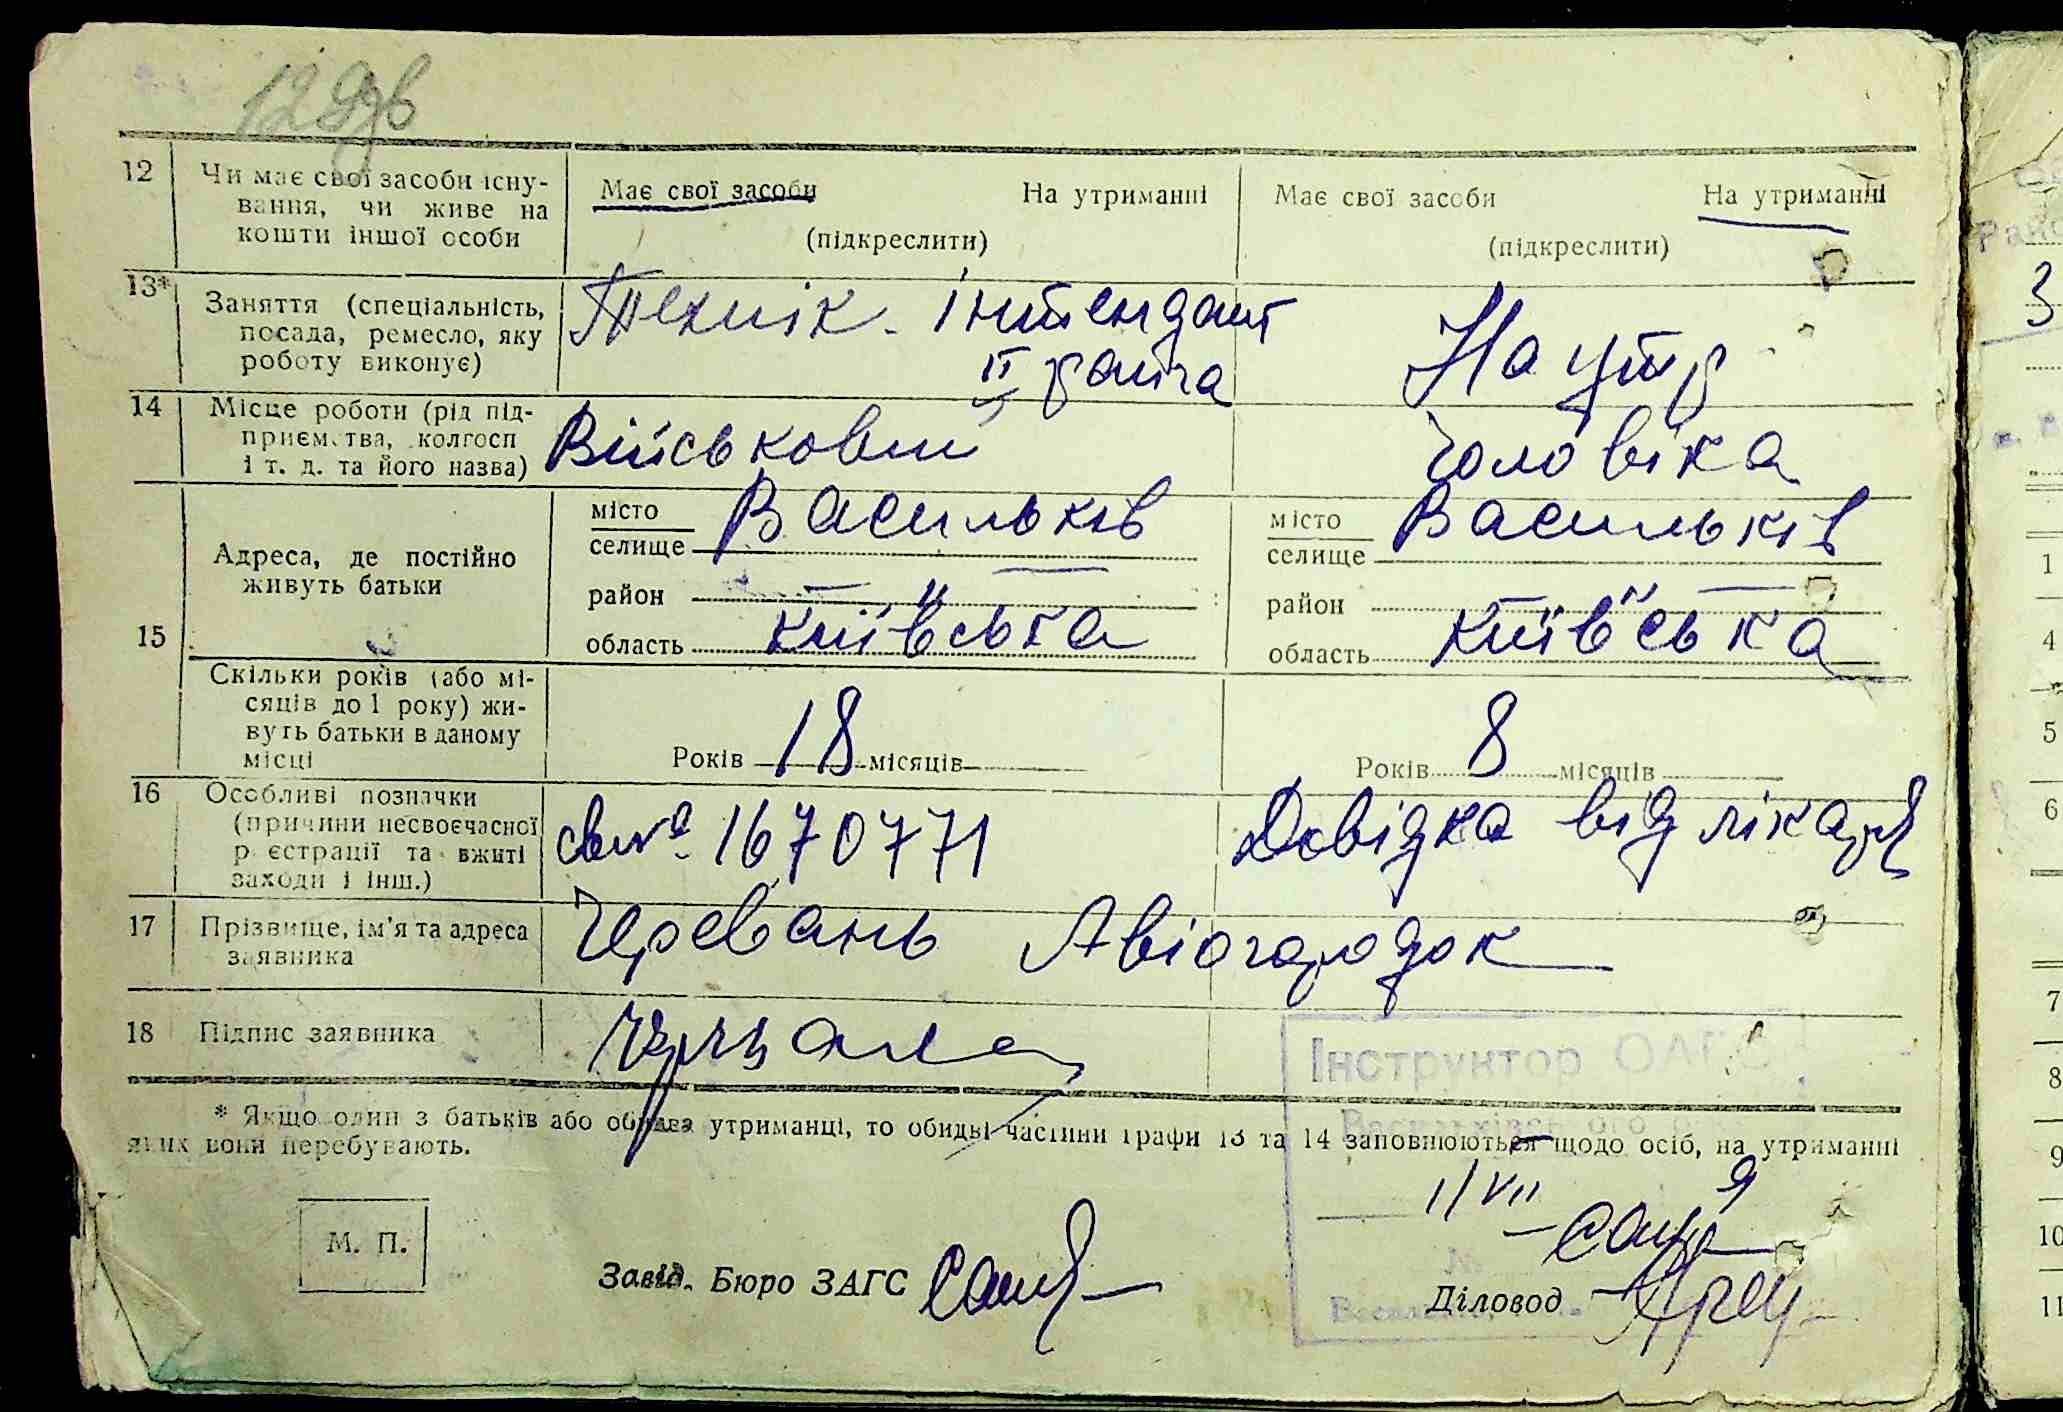 12
Чи має свої засоби існування, чи живе на кошти іншої особи
Має свої засоби На утриманні
(підкреслити)
Має свої засоби На утриманні
(підкреслити)
13*
Заняття (спеціальність,
посада, ремесло, яку
роботу виконує)
Технік-інтендант
II ранга
На утр
14
Місце роботи (рід під-
приємства, колгосп
і т. д. та його назва)
Військовий
чоловіка
15
Адреса, де постійно
живуть батьки
місто
селище Васильків
район —
область Київська
місто
селище Васильків
район —
область Київська
Скільки років (або мі-
сяців до 1 року) жи-
вуть батьки в даному
місці
Років 18 місяців
Років 8 місяців
16
Особливі позначки
(причини несвоєчасної
реєстрації та вжиті
заходи і інш.)
св № 1670771
Довідка від лікаря
17
Прізвище, ім'я та адреса
заявника
Черевань Авіогородок
18
Підпис заявника
Інструктор ОАГС
* Якщо один з батьків або обидва утриманці, то обидві частини графи 13 та 14 заповнюються щодо осіб, на утриманні
яких вони перебувають.
1/VII
М. П.
Завід. Бюро ЗАГС
Діловод
Рай
3
1
4
5
6
7
8
9
10
11